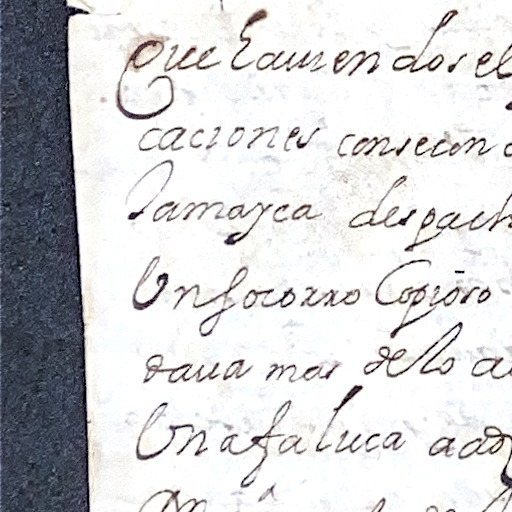 Que hauiendose
caciones consecu
Jamayca despach
Vn socorro Copioso
daua mas de lo a
Vna faluca a ad